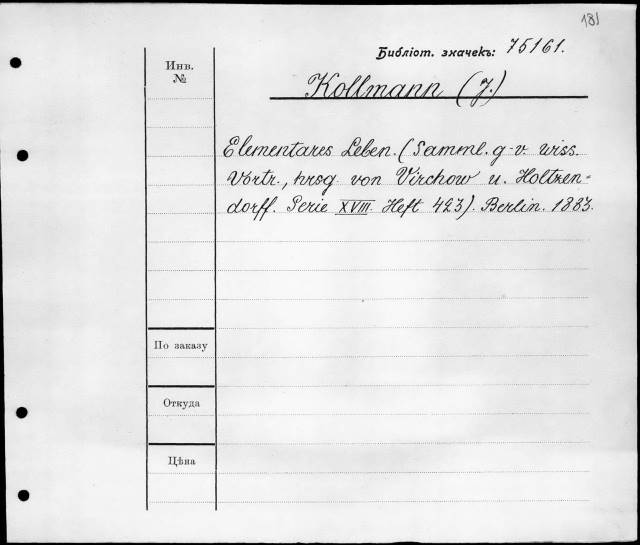 181
Библіот. значекъ: 75161.
Инв.
№
Kollmann (J.)
Elementares Leben. (Samml. g-v. wiss.
Vortr., hrsg. von Virchow u. Holtzen-
dorff. Serie XVIII. Heft 423). Berlin. 1883.
По заказу
Откуда
Цѣна